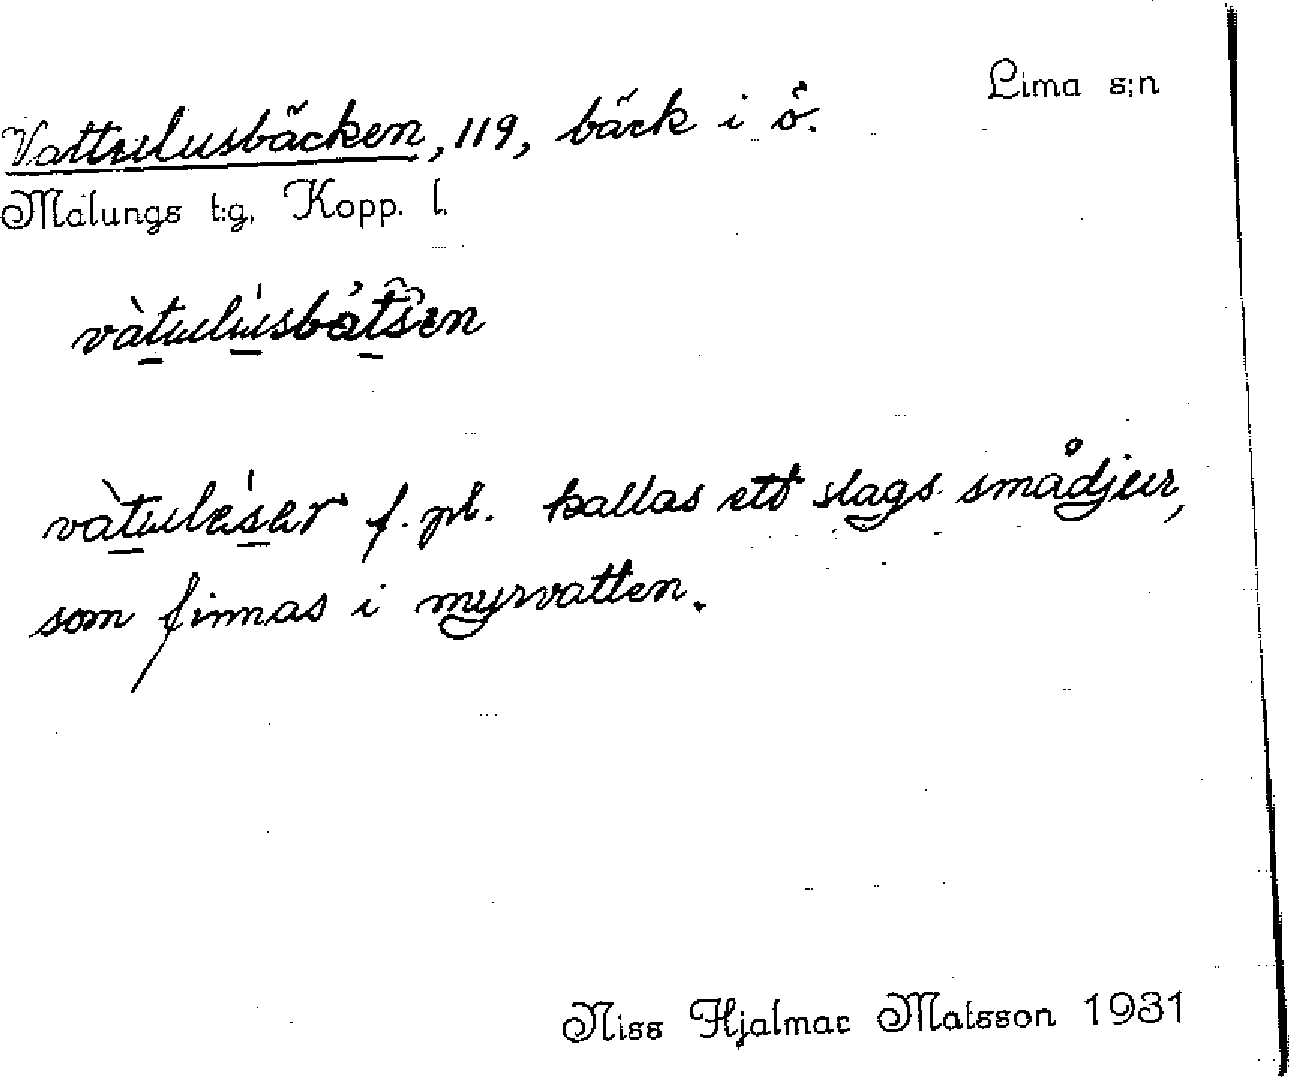 Lima s:n
Vattulusbäcken, 119, bäck i ö.
Malungs t:g. Kopp. l.
vàtulúsbåtsen
vàtuléser f. pl. kallas ett slags smådjur,
som finnas i myrvatten.
Niss Hjalmar Matsson 1931